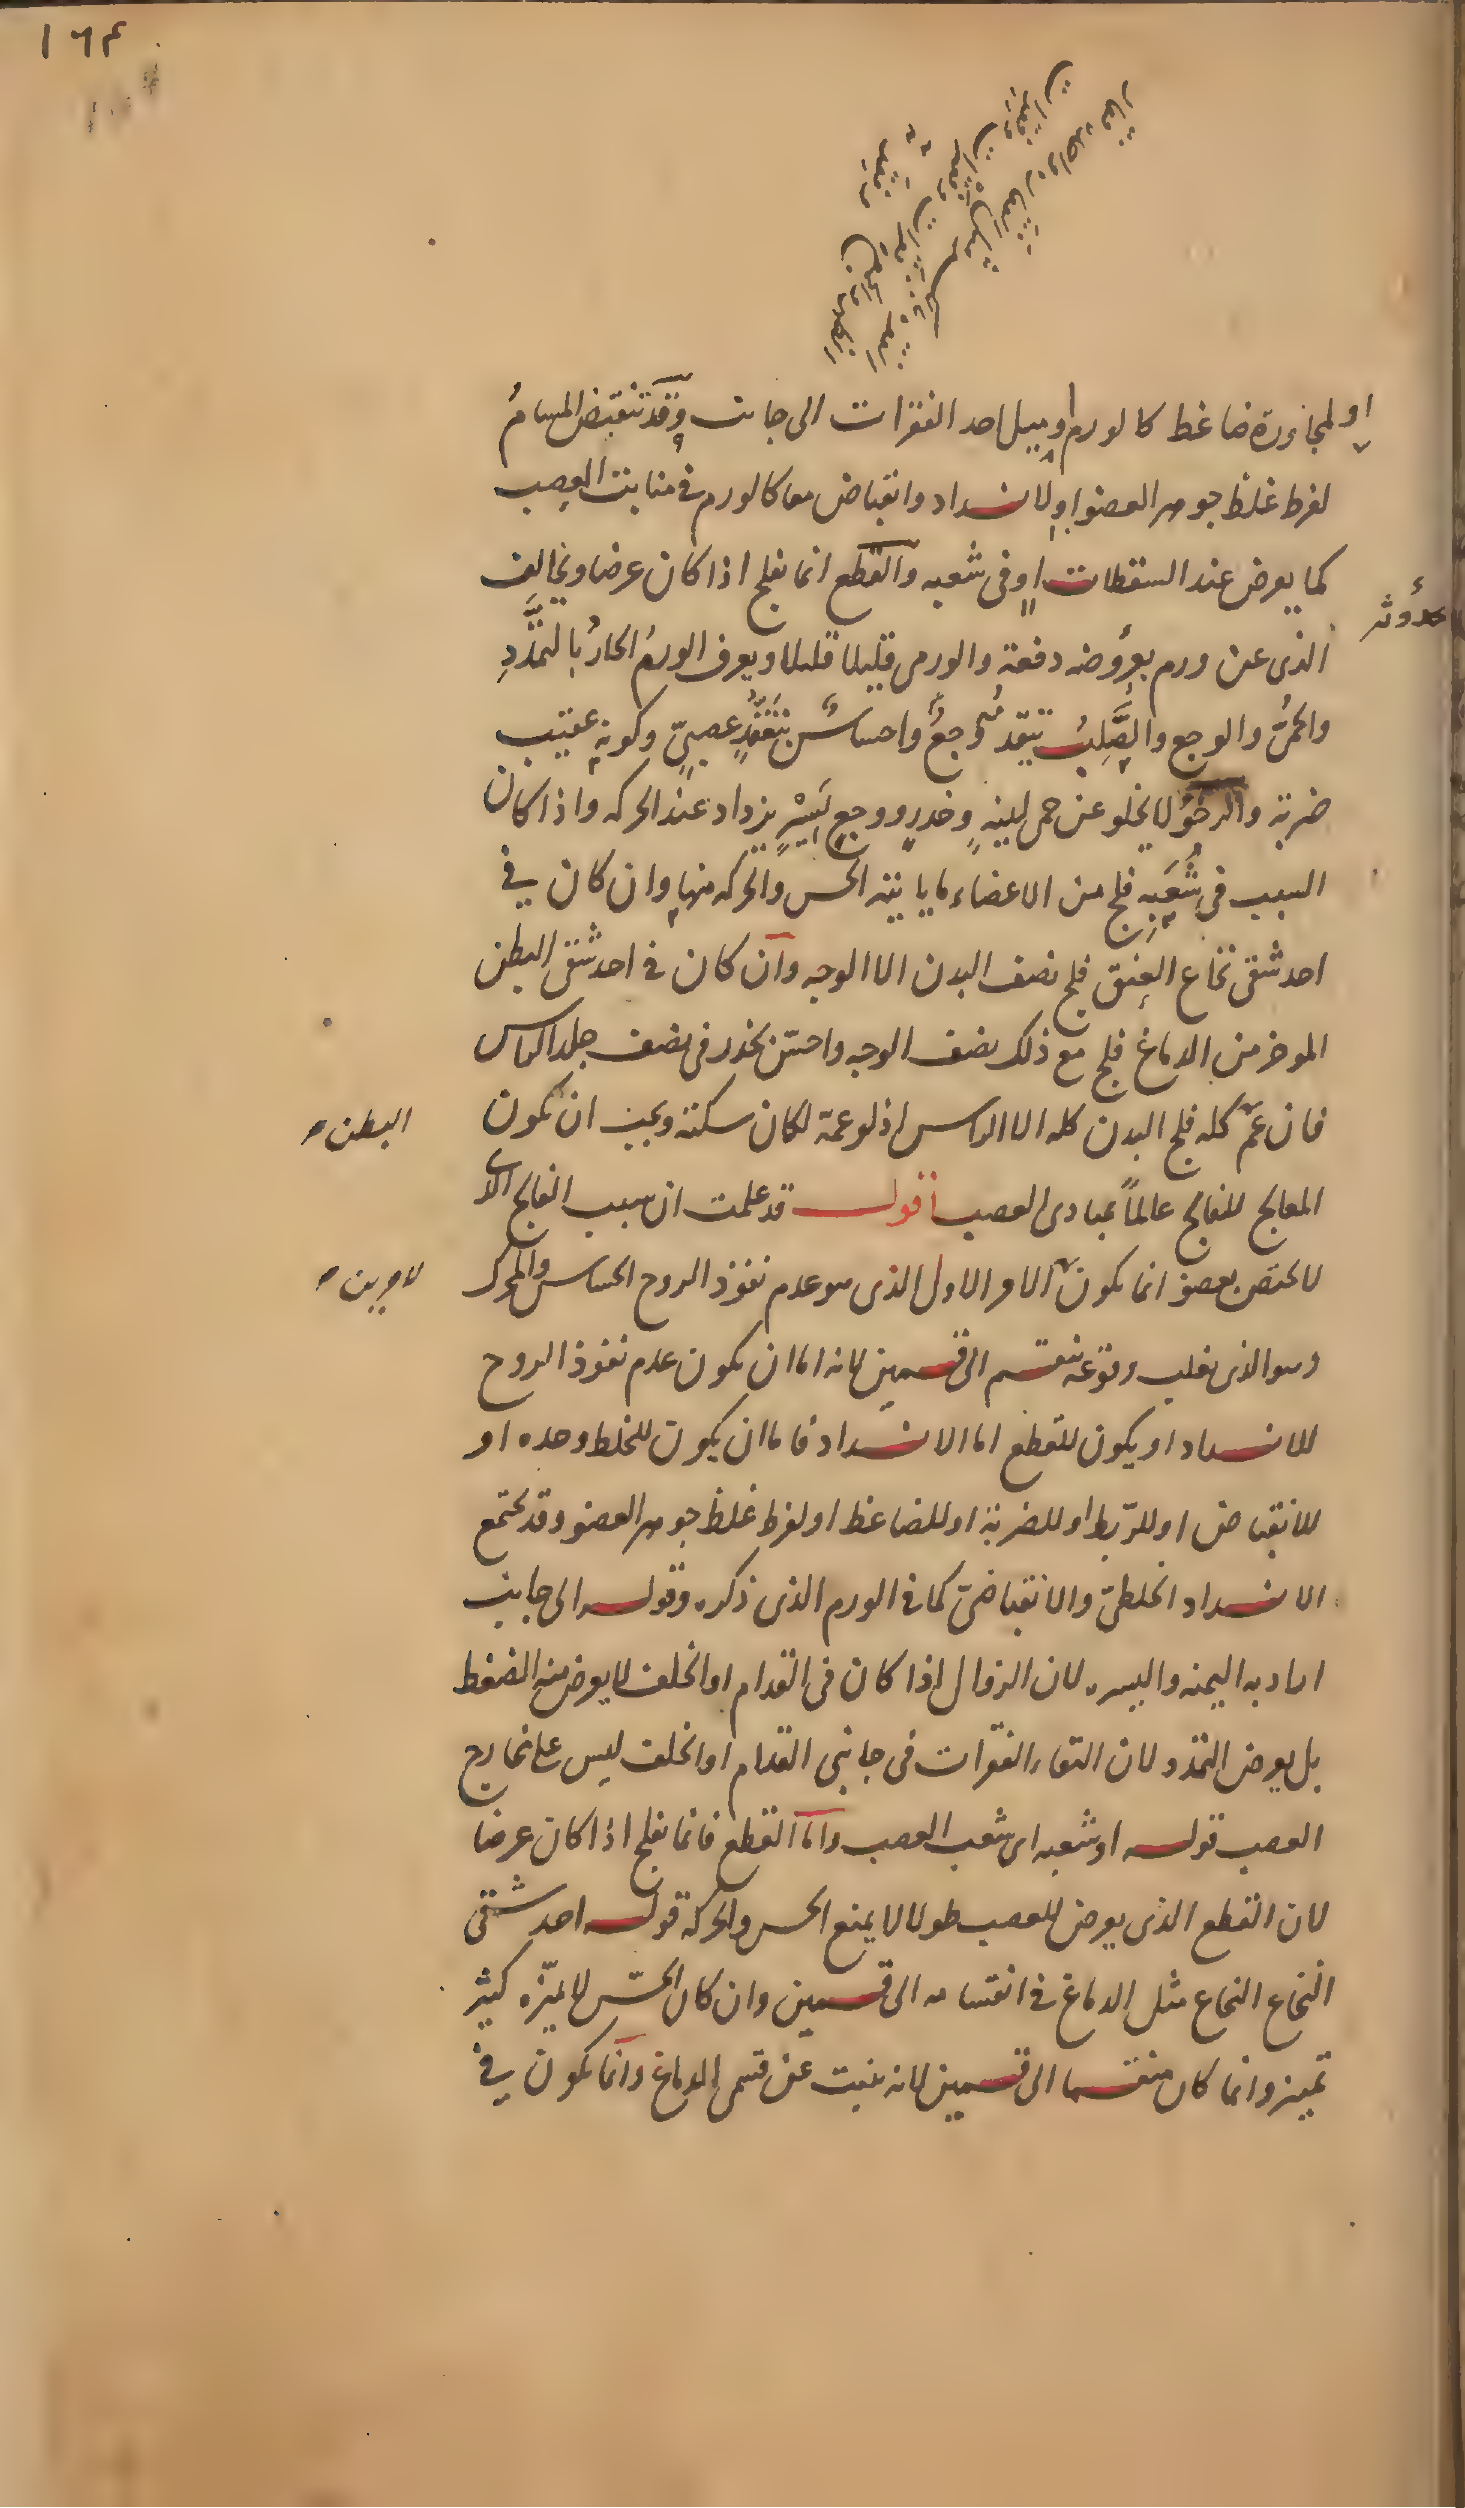 ١٦٤
او لمجاورة ضاغط كالورم او ميل احد الفقرات الى جانب وقد تنقبض المسام
لفرط غلظ جوهر العضو او لانسداد وانقباض معا كالورم فى منابت العصب
كما يعرض عند السقطات او فى شعبه والقطع انما يفلج اذا كان عرضا ويخالف
حدوثه
الذى عن ورم بعروضه دفعة والورمى قليلا قليلا ويعرف الورم الحار بالتمدد
والحمى والوجع والصلب بتقدم وجع واحساس بتعقد عصبى وكونه عقيب
ضربة والرخو لا يخلو عن حمى لينة وخدر ووجع يسير يزداد عند الحركه واذا كان
السبب فى شعبه فلج من الاعضاء ما ياتيه الحس والحركه منها وان كان فى
احد شقى نخاع العنق فلج نصف البدن الا الوجه وان كان فى احد شقى البطن
الموخر من الدماغ فلج مع ذلك نصف الوجه واحس بخدر فى نصف جلد الراس
فان عم كله فلج البدن كله الا الراس اذ لو عمه لكان سكتة ويجب ان يكون
البطن
المعالج للفالج عالما بمبادى العصب اقول قد علمت ان سبب الفالج الذى
لا يختص بعضو انما يكون الامر الاول الذى هو عدم نفوذ الروح الحساس والمحرك
لامرين
وهو الذى يغلب وقوعه ينقسم الى قسمين لانه اما ان يكون عدم نفوذ الروح
للانسداد او يكون للقطع اما الانسداد فاما ان يكون للخلط وحده او
للانقباض او للربط او للضربة او للضاغط او لفرط غلظ جوهر العضو وقد يجتمع
الانسداد الخلطى والانقباضى كما فى الورم الذى ذكره وقوله الى جانب
اراد به اليمنه واليسره لان الزوال اذا كان فى القدام او الخلف لا يعرض منه الضغط
بل يعرض التمدد لان التقاء الفقرات فى جانبى القدام او الخلف ليس على مخارج
العصب قوله او شعبه اى شعب العصب واما القطع فانما يفلج اذا كان عرضا
لان القطع الذى يعرض للعصب طولا لا يمنع الحس والحركة قوله احد شقى
النخاع النخاع مثل الدماغ فى انقسامه الى قسمين وان كان الحس لا يميزه كثير
تمييز وانما كان منقسما الى قسمين لانه ينبت عن قسمى الدماغ وانما يكون فى